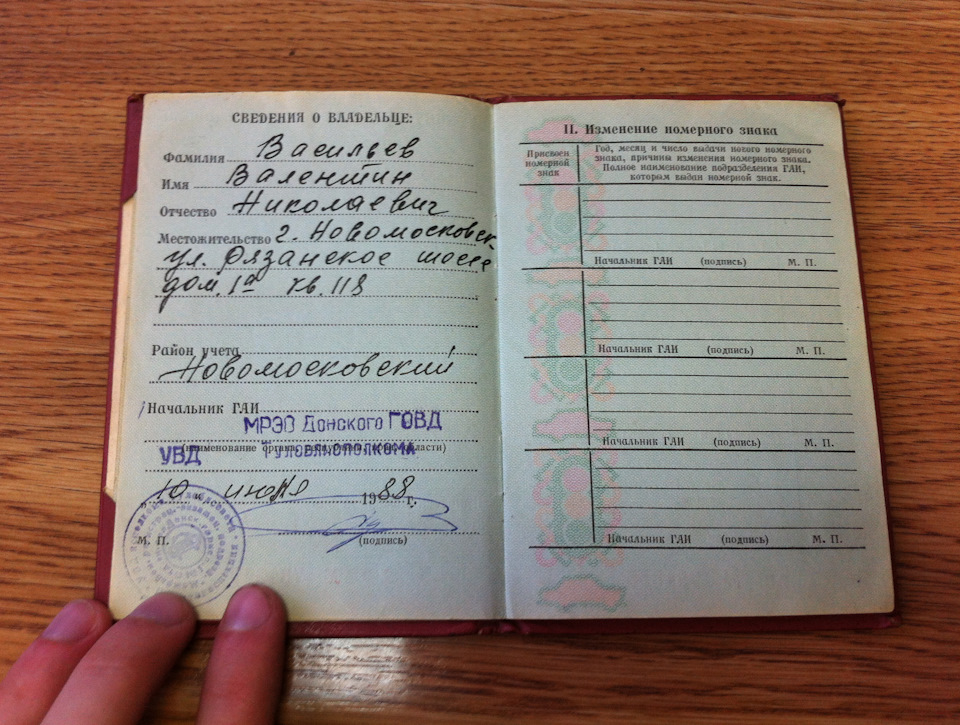 СВЕДЕНИЯ О ВЛАДЕЛЬЦЕ:
Фамилия Васильев
Имя Валентин
Отчество Николаевич
Местожительство г. Новомосковск
ул. Рязанское шоссе
дом. 1а кв. 118
Район учета
Новомосковский
Начальник ГАИ
МРЭО Донского ГОВД
(наименование органа
УВД Тулоблисполкома
10 1988 г.
М. П. (подпись)
II. Изменение номерного знака
Присвоен номерной знак
Год, месяц и число выдачи нового номерного
знака, причины изменения номерного знака.
Полное наименование подразделения ГАИ,
которым выдан номерной знак.
Начальник ГАИ (подпись) М. П.
Начальник ГАИ (подпись) М. П.
Начальник ГАИ (подпись) М. П.
Начальник ГАИ (подпись) М. П.